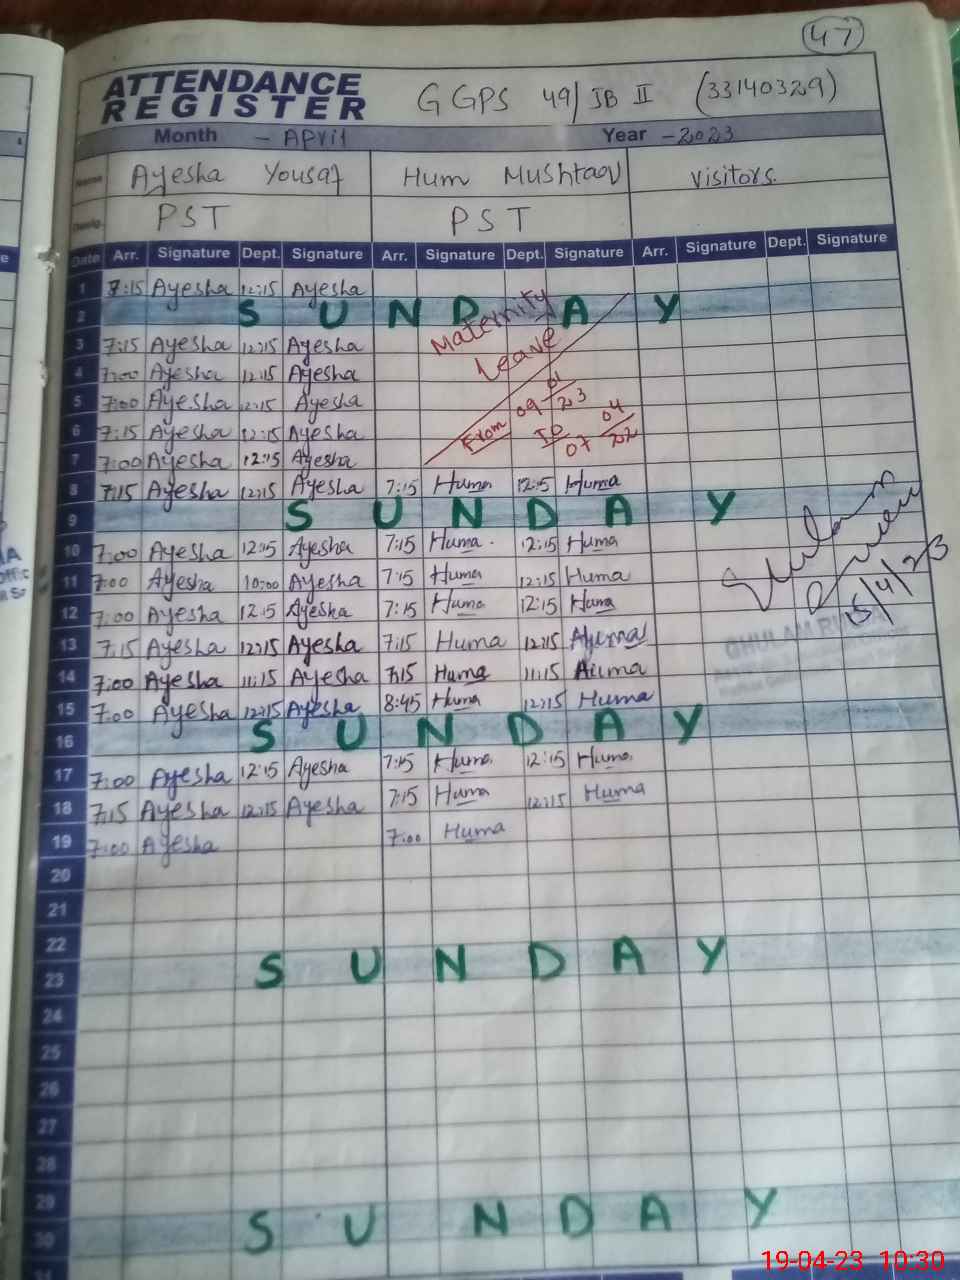 47
ATTENDANCE
REGISTER GGPS 49/JB II (33140329)
Month - April Year - 2023
Name Ayesha Yousaf Hum Mushtaq visitors.
Desig. PST PST
Date Arr. Signature Dept. Signature Arr. Signature Dept. Signature Arr. Signature Dept. Signature
1 7:15 Ayesha 12:15 Ayesha
2 SUNDAY
Maternity
3 7:15 Ayesha 12:15 Ayesha
Leave
4 7:00 Ayesha 12:15 Ayesha
5 7:00 Ayesha 12:15 Ayesha
From 09 01/23
6 7:15 Ayesha 12:15 Ayesha
To 07 04
7 7:00 Ayesha 12:15 Ayesha
8 7:15 Ayesha 12:15 Ayesha 7:15 Huma 12:15 Huma
9 SUNDAY
10 7:00 Ayesha 12:15 Ayesha 7:15 Huma. 12:15 Huma
11 7:00 Ayesha 10:00 Ayesha 7:15 Huma 12:15 Huma
12 7:00 Ayesha 12:15 Ayesha 7:15 Huma 12:15 Huma
13 7:15 Ayesha 12:15 Ayesha 7:15 Huma 12:15 Huma
14 7:00 Ayesha 11:15 Ayesha 7:15 Huma 11:15 Huma
15 7:00 Ayesha 12:15 Ayesha 8:45 Huma 12:15 Huma
16 SUNDAY
17 7:00 Ayesha 12:15 Ayesha 7:15 Huma. 12:15 Huma.
18 7:15 Ayesha 12:15 Ayesha 7:15 Huma 12:15 Huma
19 7:00 Ayesha 7:00 Huma
20
21
22
23 SUNDAY
24
25
26
27
28
29
30 SUNDAY
31
Ghulam
15/4/23
GHULAM
19-04-23 10:30